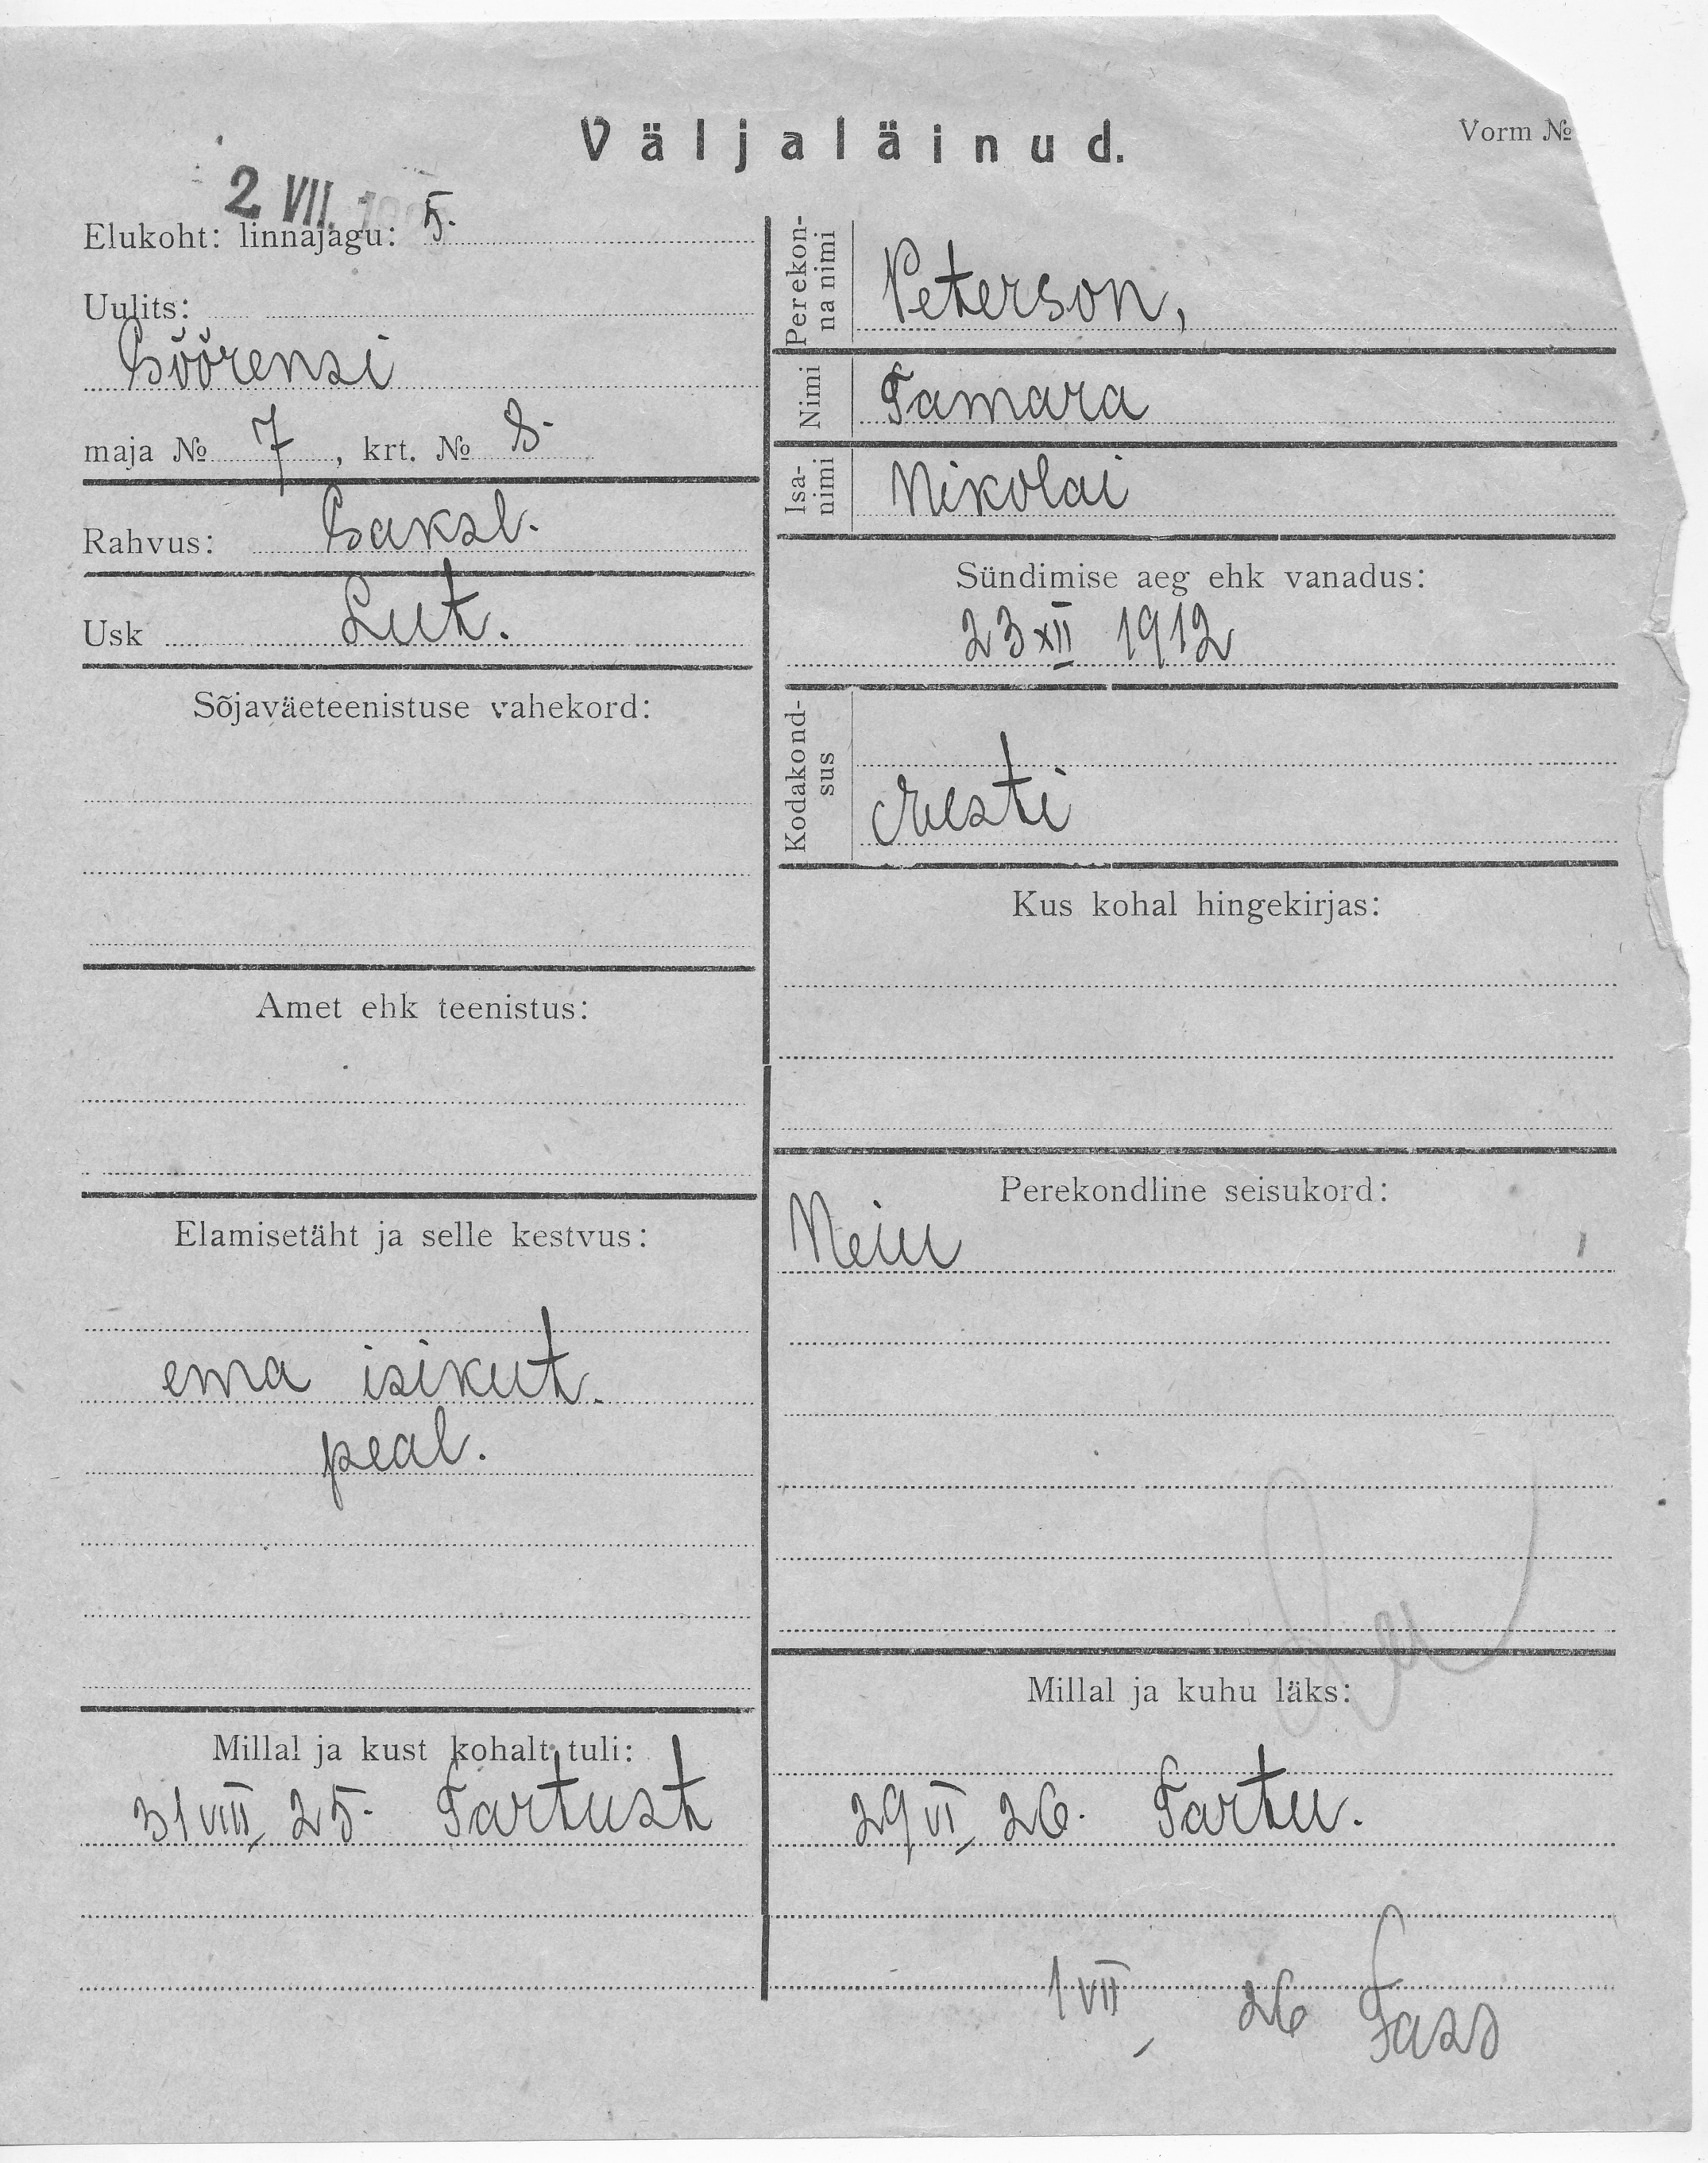 Väljaläinud.
Vorm №
2 VII.
Elukoht: linnajagu: 5.
Uulits:
Söörensi
maja № 7, krt. № 8.
Rahvus: Saksl.
Usk Lut.
Sõjaväeteenistuse vahekord:
Amet ehk teenistus:
Elamisetäht ja selle kestvus:
ema isikut.
peal.
Millal ja kust kohalt tuli:
31 VIII 25. Tartust
Perekon-
na nimi
Peterson,
Nimi
Tamara
Isa-
nimi
Nikolai
Sündimise aeg ehk vanadus:
23 XII 1912
Kodakond-
sus
Eesti
Kus kohal hingekirjas:
Perekondline seisukord:
Neiu
Millal ja kuhu läks:
29 VI 26. Tartu.
1 VII 26